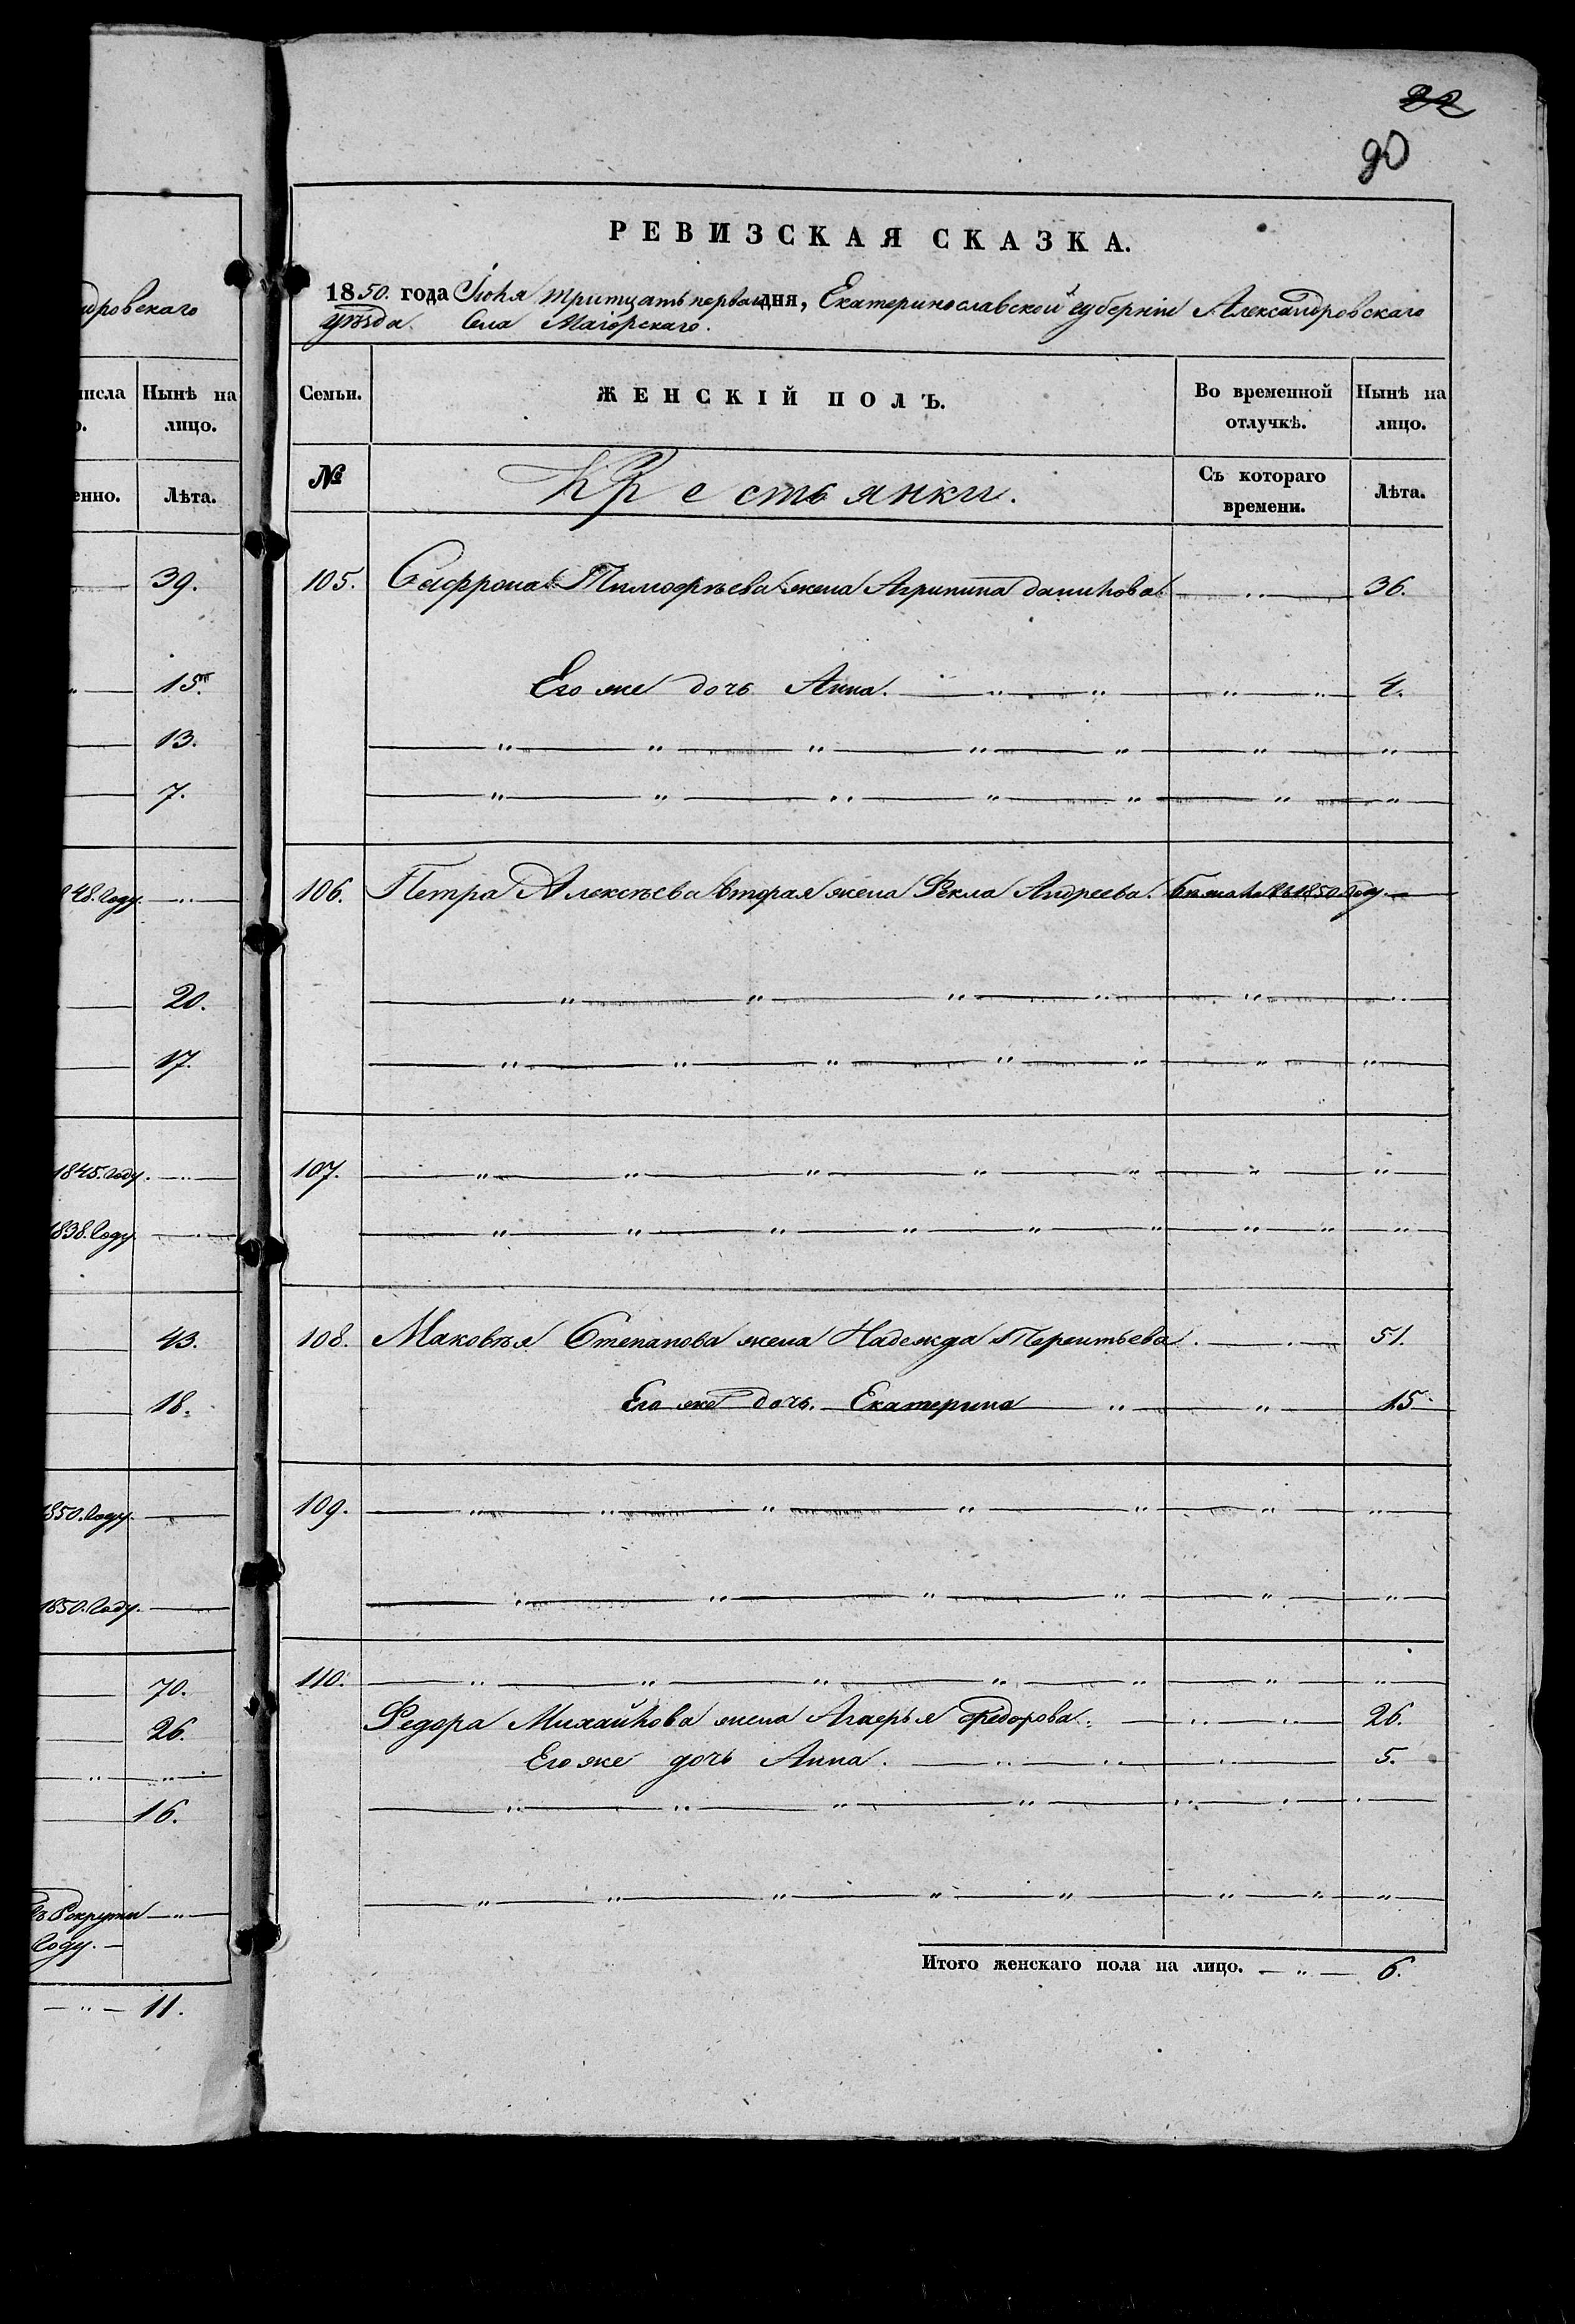 22
90
дровскаго
числа Нынѣ на
о. лицо.
енно. Лѣта.
39.
15.
13.
7.
48. году.
20.
17.
1845. году.
1838. году.
43.
18.
1850. году.
1850. году.
70.
26.
16.
Рекруты
году.
11.
РЕВИЗСКАЯ СКАЗКА.
1850. года Іюля тритцать перваго дня, Екатеринославской губерніи Александровскаго
уѣзда. Села Маіорскаго.
Семьи. ЖЕНСКІЙ ПОЛЪ. Во временной отлучкѣ. Нынѣ на лицо.
№ Крестьянки. Съ котораго времени. Лѣта.
105. Сафрона Тимофѣева жена Агрипина Данилова 36.
Его же дочь Анна. 4.
106. Петра Алексѣева вторая жена Фекла Андреева. 1850 году.
107.
108. Маковѣя Степанова жена Надежда Терентьева. 51.
Его же дочь. Екатерина 15
109.
110.
Федора Михайлова жена Агафья Федорова. 26.
Его же дочь Анна. 5.
Итого женскаго пола на лицо. 6.